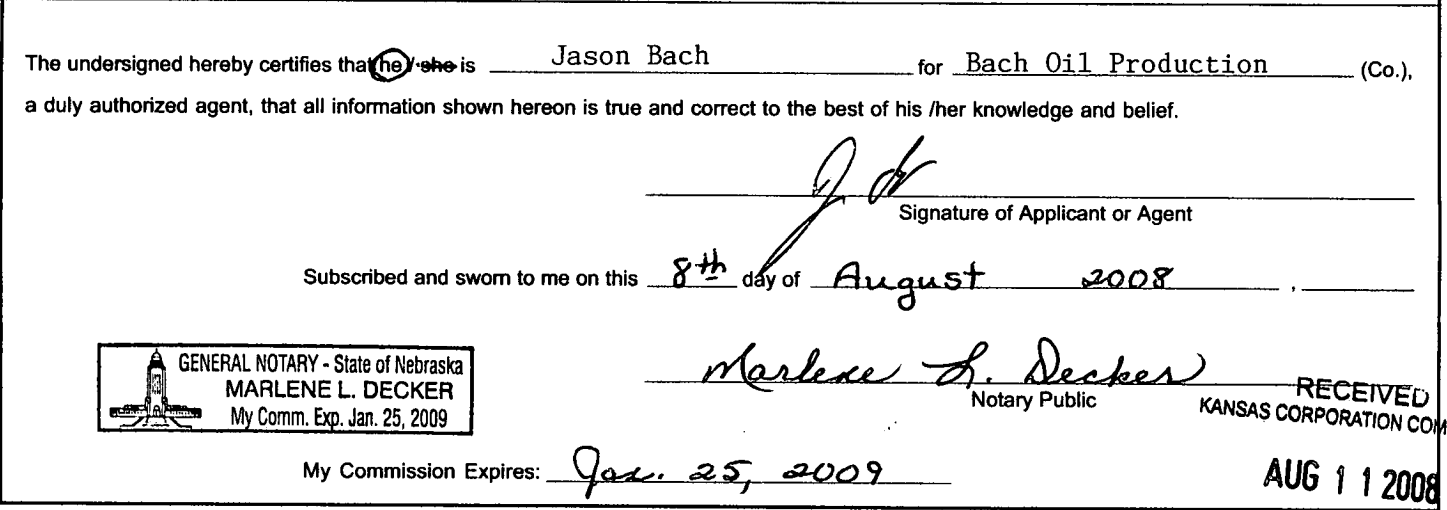 The undersigned hereby certifies that he / she is Jason Bach for Bach Oil Production (Co.),
a duly authorized agent, that all information shown hereon is true and correct to the best of his /her knowledge and belief.
Signature of Applicant or Agent
Subscribed and sworn to me on this 8th day of August 2008 , 
GENERAL NOTARY - State of Nebraska
MARLENE L. DECKER
My Comm. Exp. Jan. 25, 2009
Marlene L. Decker
Notary Public
RECEIVED
KANSAS CORPORATION COM
My Commission Expires: Jan. 25, 2009
AUG 11 2008